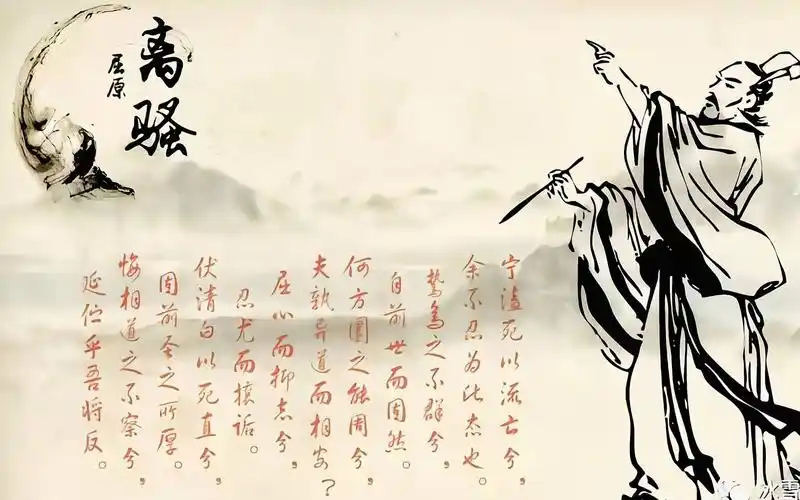 离骚
屈原
宁溘死以流亡兮，
余不忍为此态也。
鸷鸟之不群兮，
自前世而固然。
何方圜之能周兮，
夫孰异道而相安？
屈心而抑志兮，
忍尤而攘诟。
伏清白以死直兮，
固前圣之所厚。
悔相道之不察兮，
延伫乎吾将反。
冰雪